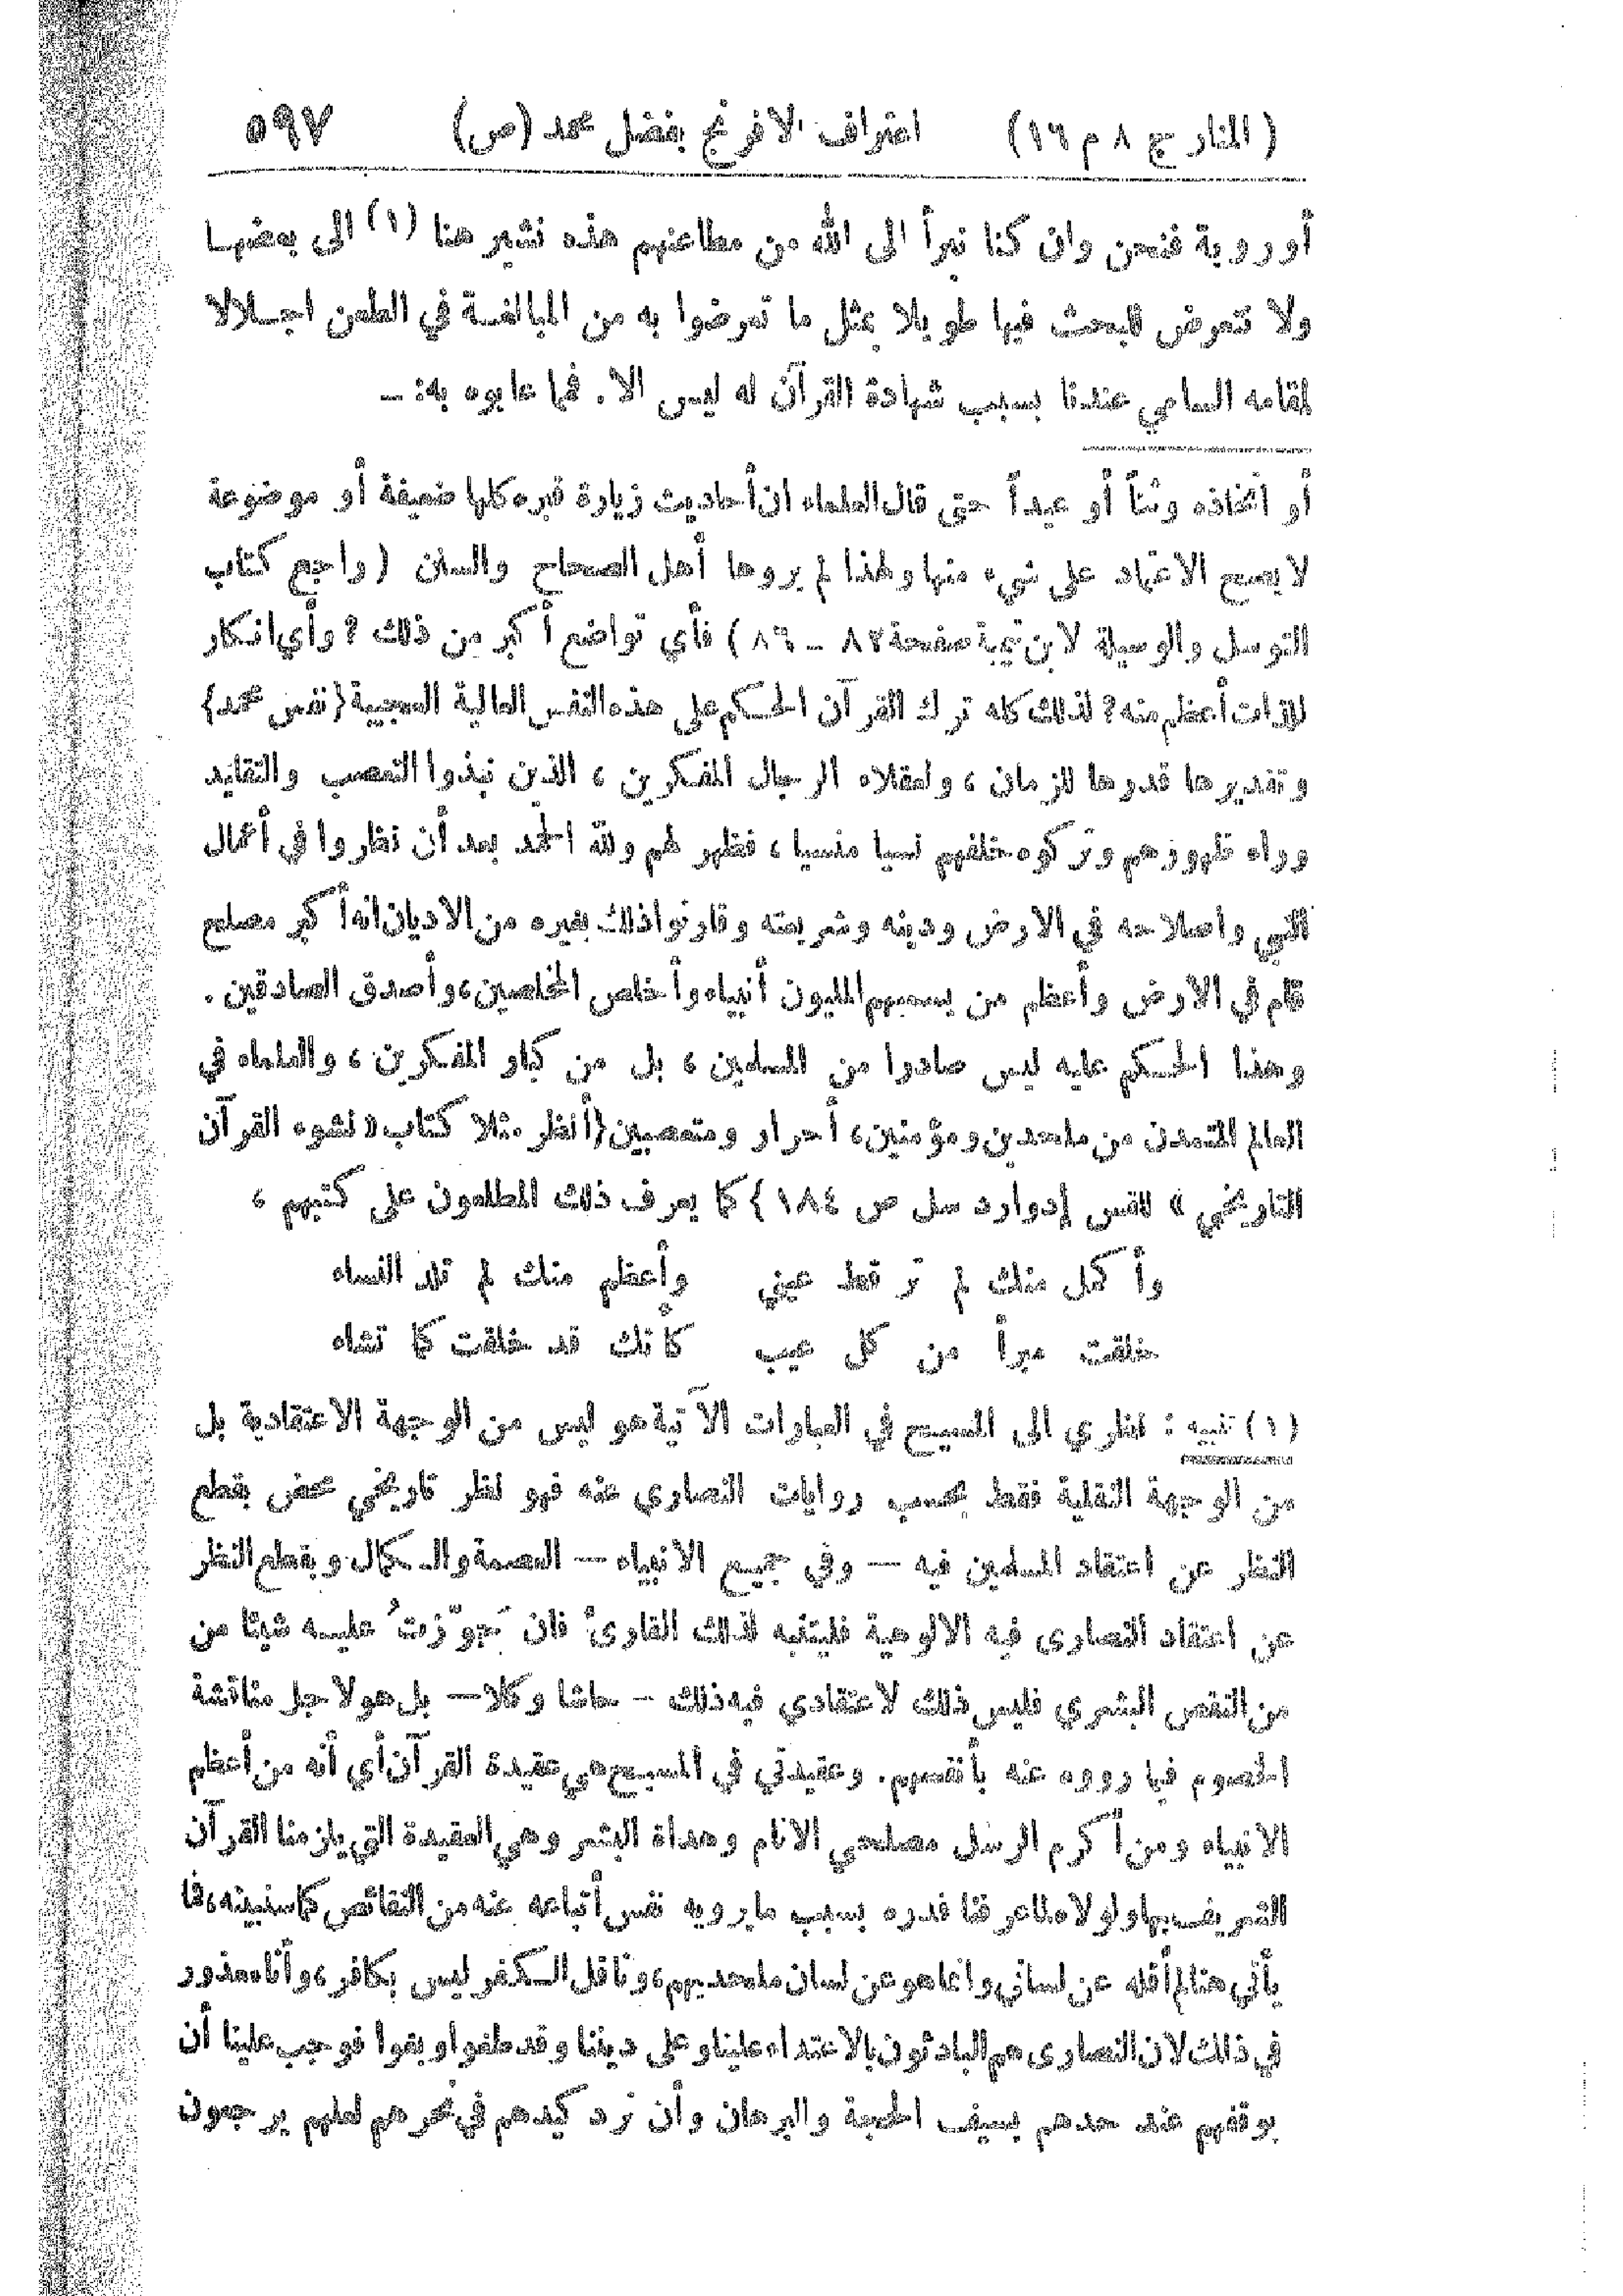 ( المنار ج ٨ م ١٦ ) اعتراف الافرنج بفضل محمد (ص) ٥٩٧
أوروبة فنحن وان كنا نبرأ الى الله من مطاعنهم هذه نشير هنا (١) الى بعضها
ولا نتعرض للبحث فيها طويلا بمثل ما تعرضوا به من المبالغة في الطعن اجلالا
لمقامه السامي عندنا بسبب شهادة القرآن له ليس الا. فمما عابوه به: —
أو اتخاذه وثناً أو عيداً حتى قال العلماء ان أحاديث زيارة قبره كلها ضعيفة أو موضوعة
لا يصح الاعتماد على شيء منها ولهذا لم يروها أهل الصحاح والسنن ( واجع كتاب
التوسل والوسيلة لابن تيمية صفحة ٨٢ — ٨٦ ) فأي تواضع أكبر من ذلك ؟ وأي انكار
للذات أعظم منه؟ لذلك كله ترك القرآن الحكم على هذه النفس العالية العجيبة (نفس محمد)
وتقديرها قدرها للزمان ، ولعقلاء الرجال المفكرين ، الذين نبذوا التعصب والتقليد
وراء ظهورهم وتركوه خلفهم نسيا منسيا ، فظهر لهم ولله الحمد بعد أن نظروا في أعمال
النبي واصلاحه في الارض ودينه وشريعته وقارنوا ذلك بغيره من الاديان انه أكبر مصلح
قام في الارض وأعظم من يسميهم المليون أنبياء وأخلص المخلصين، وأصدق الصادقين .
وهذا الحكم عليه ليس صادرا من المسلمين ، بل من كبار المفكرين ، والعلماء في
العالم المتمدن من ملحدين ومؤمنين، أحرار ومتعصبين (أنظر مثلا كتاب « نشوء القرآن
التاريخي » للقس إدوارد سل ص ١٨٤ ) كما يعرف ذلك المطلعون على كتبهم ،
وأكمل منك لم تر قط عيني وأعظم منك لم تلد النساء
خلقت مبرأ من كل عيب كأنك قد خلقت كما تشاء
(١) تنبيه : نظري الى المسيح في العبارات الآتية هو ليس من الوجهة الاعتقادية بل
من الوجهة النقلية فقط بحسب روايات النصارى عنه فهو نظر تاريخي محض بقطع
النظر عن اعتقاد المسلمين فيه — وفي جميع الانبياء — العصمة والكمال وبقطع النظر
عن اعتقاد النصارى فيه الالوهية فليتنبه لذلك القارئ فان جوّزتُ عليه شيئا من
من النقص البشري فليس ذلك لاعتقادي فيه ذلك — حاشا وكلا — بل هو لاجل مناقشة
الخصوم فيما رووه عنه بأنفسهم. وعقيدتي في المسيح هي عقيدة القرآن أي أنه من أعظم
الانبياء ومن أكرم الرسل مصلحي الانام وهداة البشر وهي العقيدة التي يلزمنا القرآن
الشريف بها ولولاه لما عرفنا قدره بسبب ما يرويه نفس أتباعه عنه من النقائص كما سنبينه، فما
يأتي هنا لم أقله عن لساني وانما هو عن لسان ملحديهم، وناقل الكفر ليس بكافر، وأنا معذور
في ذلك لان النصارى هم البادئون بالاعتداء علينا وعلى ديننا وقد طغوا وبغوا فوجب علينا أن
نوقفهم عند حدهم بسيف الحجة والبرهان وأن نرد كيدهم في نحرهم لعلهم يرجعون